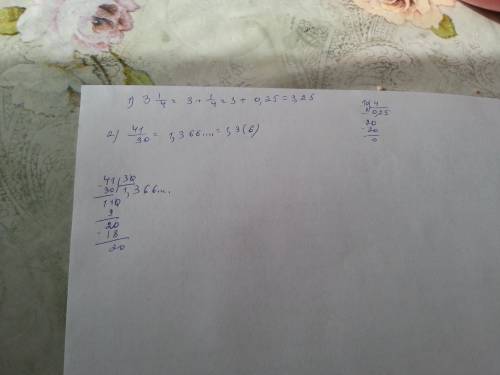 1) 3 1/4 = 3 + 1/4 = 3 + 0,25 = 3,25
10 | 4
8 | 0,25
20
-20
0
2) 41/30 = 1,366... = 1,3(6)
-41 | 30
30 | 1,366...
110
9
20
-18
20